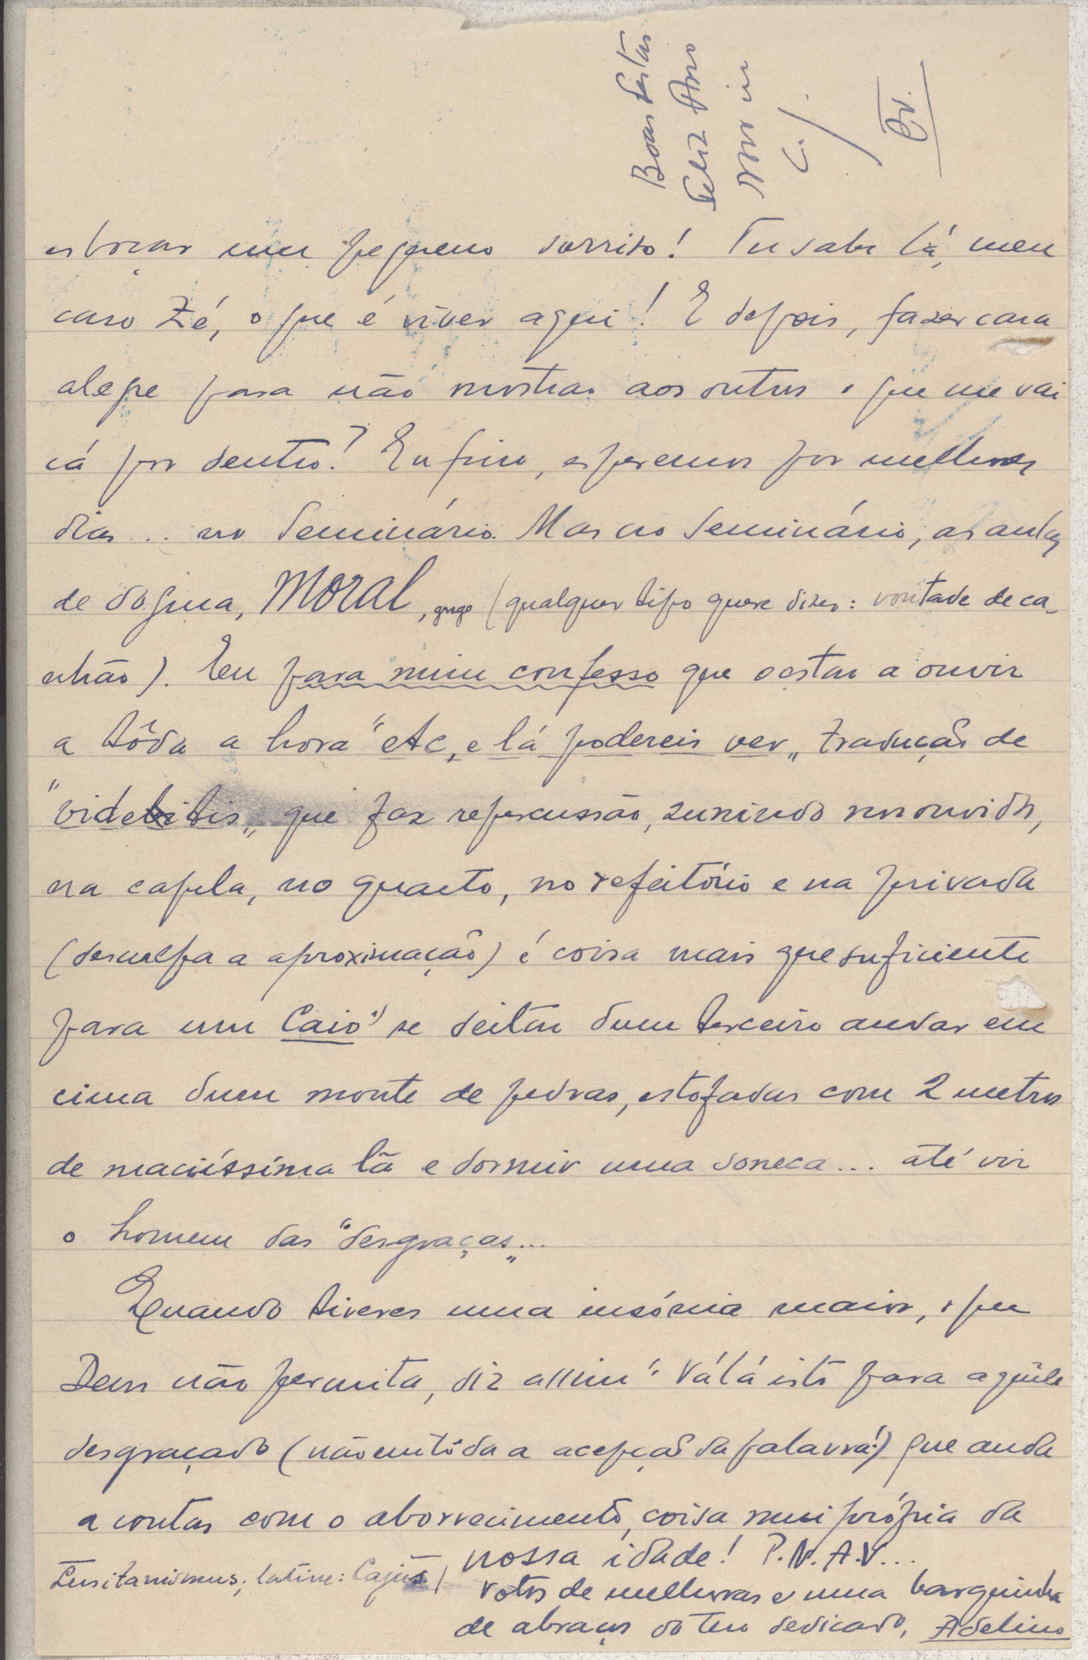 Boas Festas
Feliz Ano
Novo in
C. J.
esboçar um pequeno sorriso! Tu sabes lá, meu
caro Zé, o que é viver aqui! E depois, fazer cara
alegre para não mostrar aos outros o que me vai
cá por dentro!? Enfim, esperemos por melhores
dias... no Seminário. Mas no Seminário, as aulas
de dogma, MORAL, grego (qualquer tipo quere dizer: vontade de ca-
nhão). Eu para mim confesso que o estar a ouvir
a tôda a hora "etc, e lá podereis ver„ tradução de
"videbitis„ que faz repercussão, zunindo nos ouvidos,
na capela, no quarto, no refeitório e na privada
(desculpa a aproximação) é coisa mais que suficiente
para um Caio¹) se deitar dum terceiro andar em
cima dum monte de pedras, estofadas com 2 metros
de maciíssima lã e dormir uma soneca... até vir
o homem das "desgraças„...
Quando tiveres uma insónia maior, o que
Deus não permita, diz assim: Vá lá isto para aquele
desgraçado (não em tôda a acepção da palavra!) que anda
a contas com o aborrecimento, coisa mui própria da
nossa idade! P.N.A.V...
Lusitanismus; latine: Cajus/
Votos de melhoras e uma barquinha
de abraços do teu dedicado, Adelino